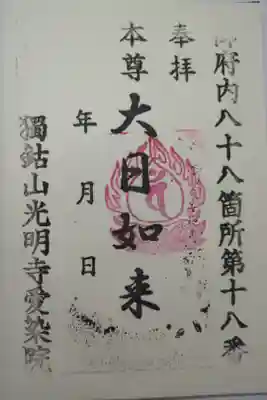 御府内八十八箇所第十八番
奉拝
本尊 大日如来
年月日
獨鈷山光明寺愛染院